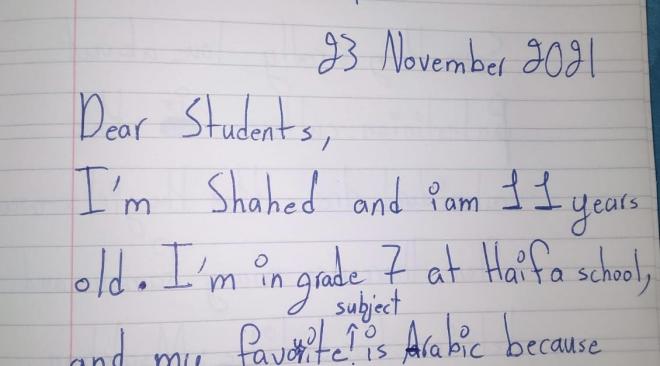 23 November 2021
Dear Students,
I'm Shahed and i am 11 years
old. I'm in grade 7 at Haifa school,
subject
and my favorite is Arabic because